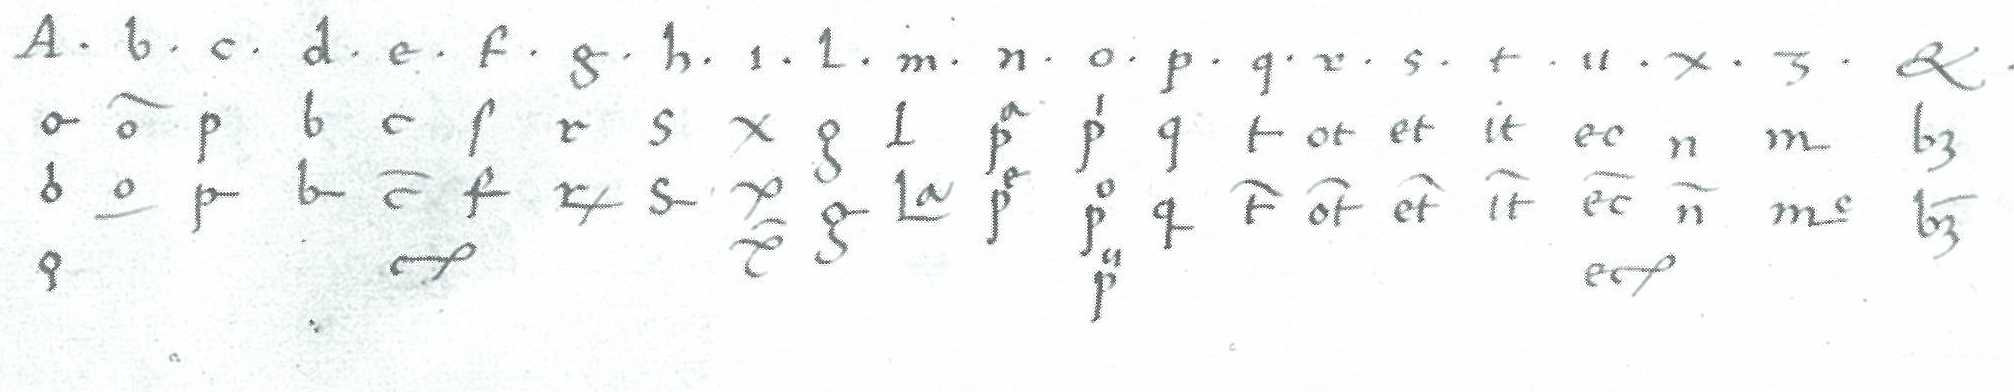 A · b · c · d · e · f · g · h · ı · l · m · n · o · p · q · r · s · t · u · x · ʒ · &
o õ p b c ſ r s x g L pᵃ pⁱ q t ot et it ec n m bʒ
b o̲ p b c̄ f r s x g La pᵉ pᵒ q t̃ ot̃ et̃ it̃ ec̄ ñ mᵉ bʒ̄
q x̃ pᵘ